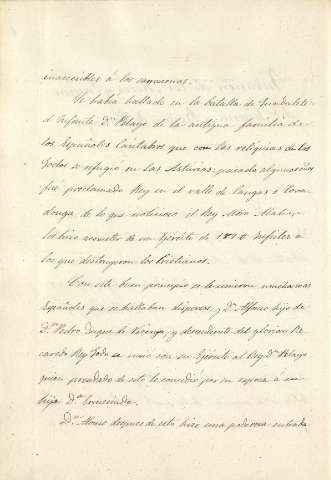 inaccesibles á los sarracenos.
Se habia hallado en la batalla de Guadalete
el Infante D.n Pelayo de la antigua familia de
los Españoles Cántabros que con las reliquias de los
Godos se refugió en las Asturias: pasado algunos años
fué proclamado Rey en el valle de Cangas ó Cova-
donga, de lo que noticioso el Rey Moro Alahor
los hizo acometer de un Ejército de infieles a
los que destruyeron los Cristianos.
Con este buen principio se le unieron muchos mas
Españoles que se hallaban dispersos, y D.n Alfonso hijo de
D.n Pedro Duque de Vizcaya, y descendiente del glorioso Re-
caredo Rey Godo se unió con su Ejército al Rey D.n Pelayo
quien prendado de esto le concedió por su esposa á su
hija D.a Ermesinda.
D.n Alonso despues de esto hizo una poderosa entrada